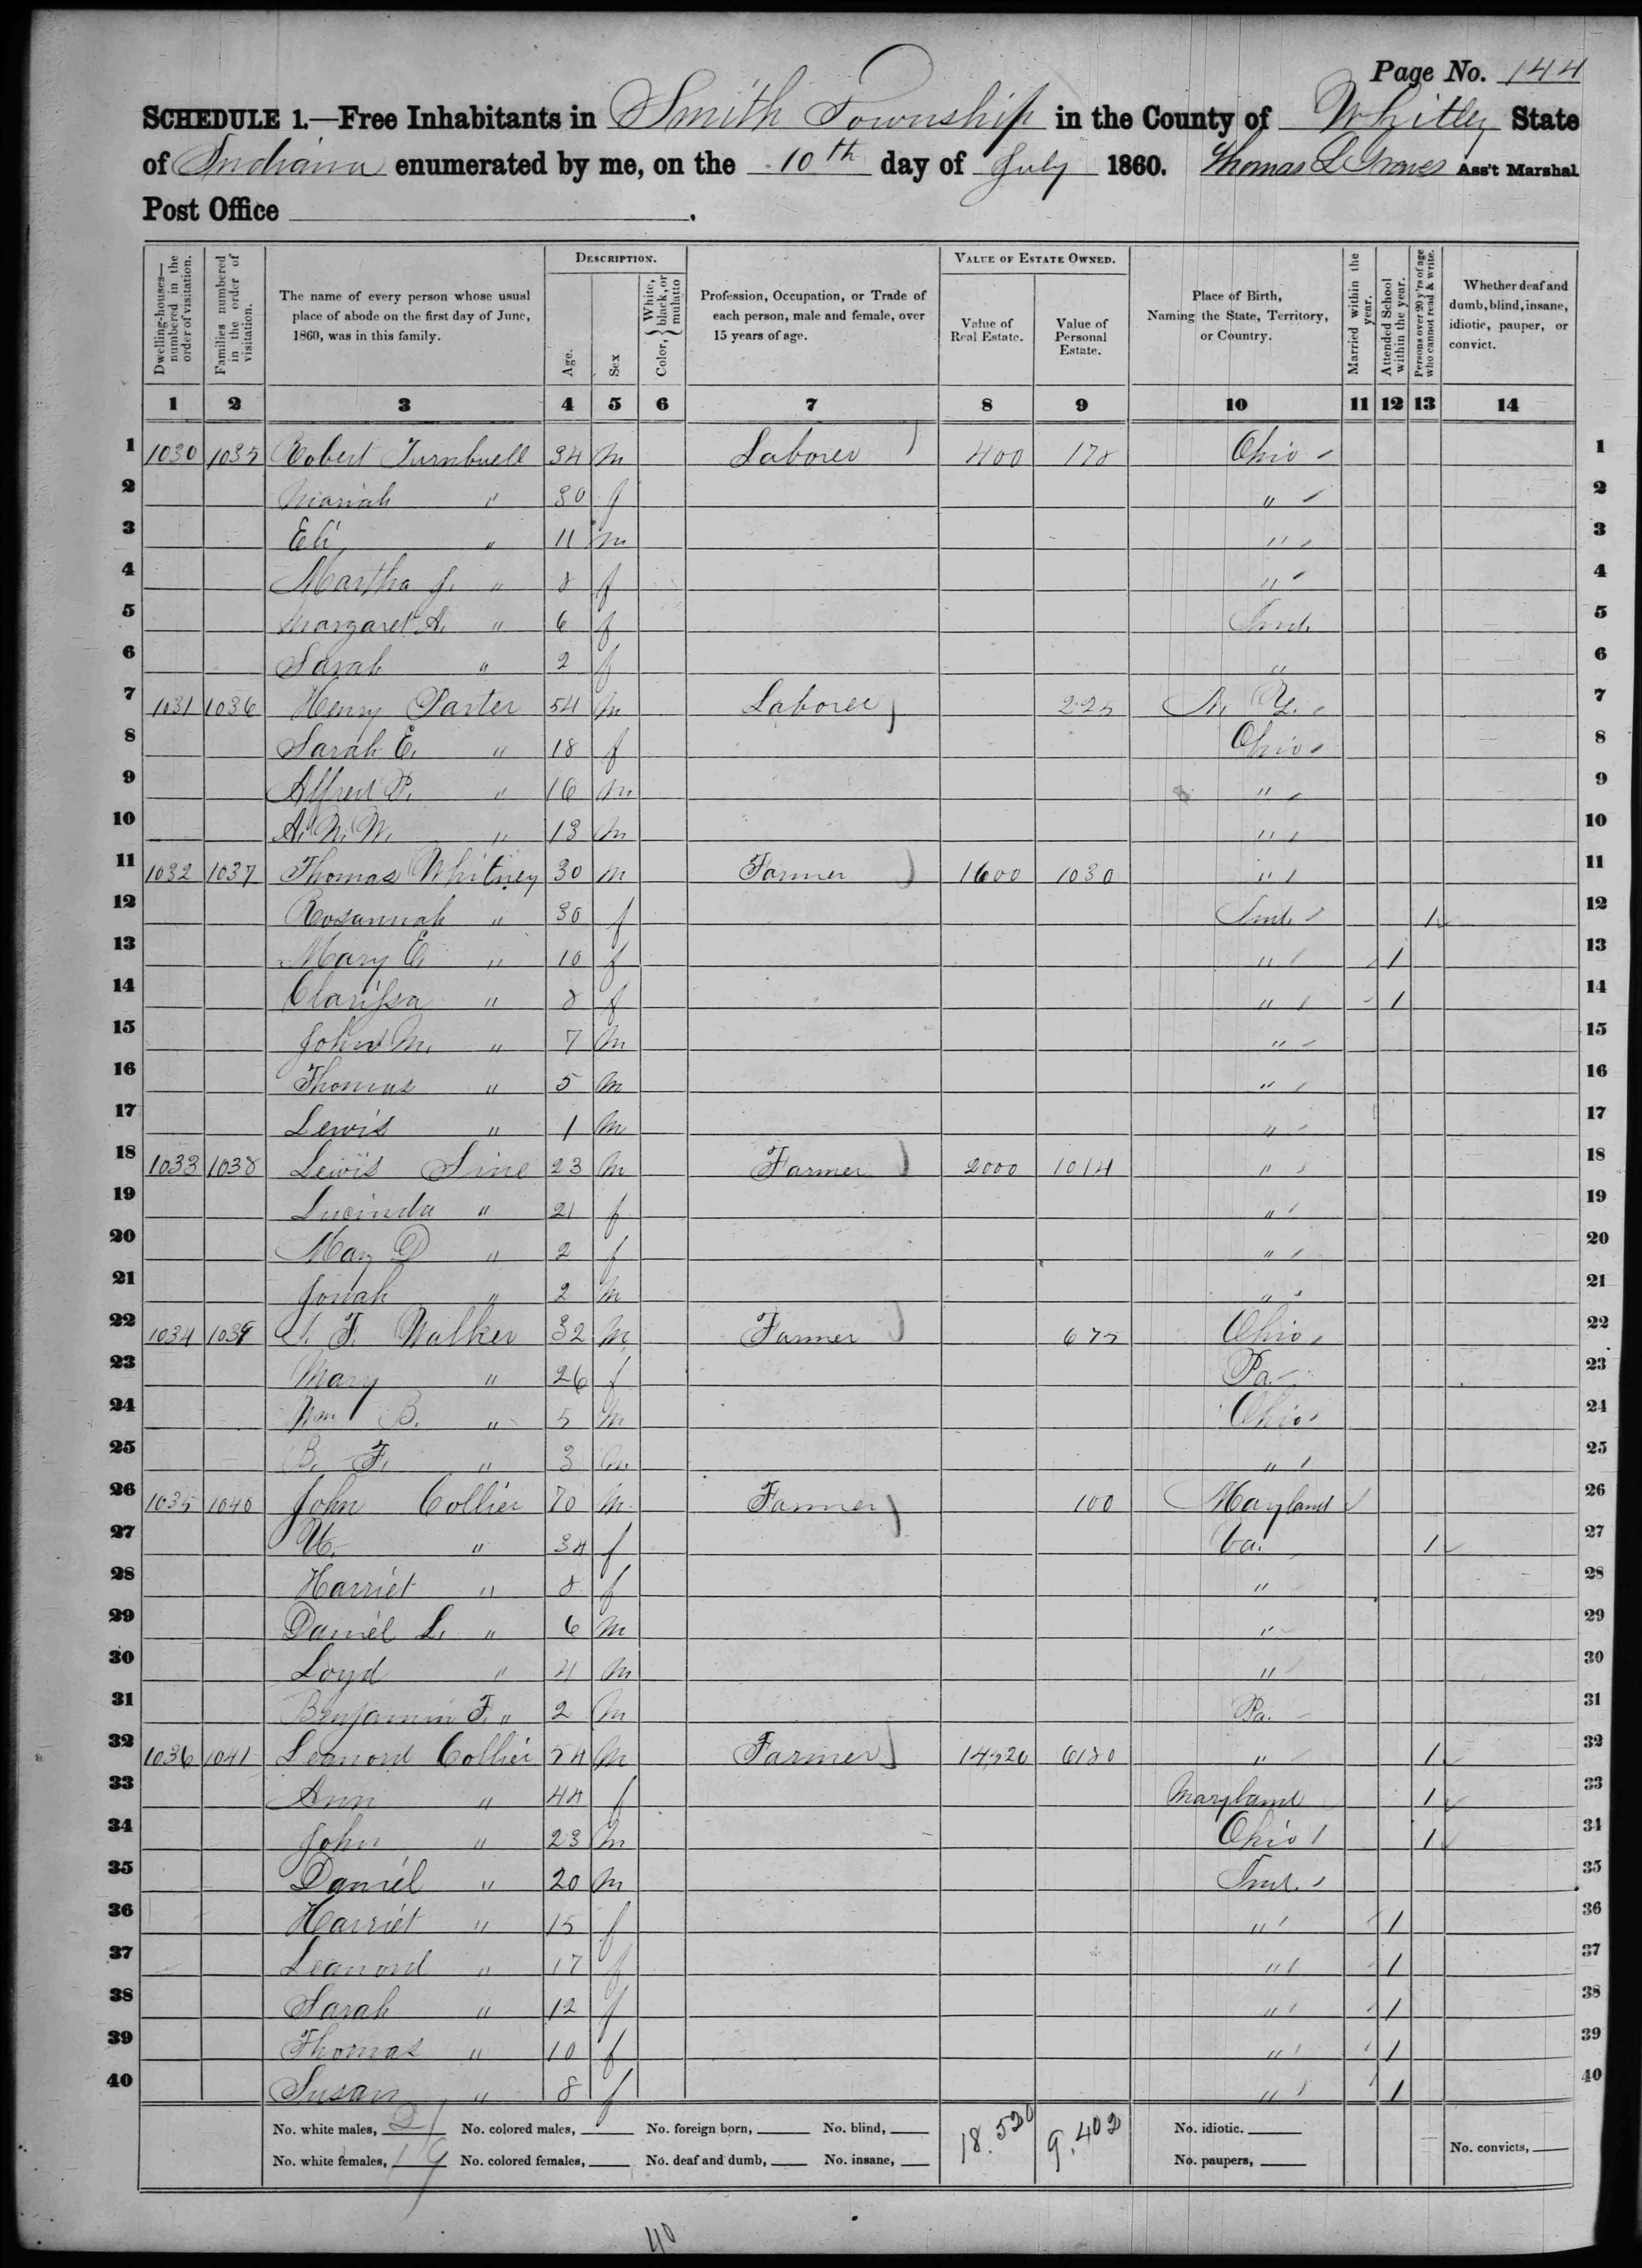 Page No. 144
SCHEDULE 1.—Free Inhabitants in Smith Township in the County of Whitley State
of Indiana enumerated by me, on the 10th day of July 1860. Thomas L Graves Ass't Marshal
Post Office .
Dwelling-houses—numbered in the order of visitation.
Families numbered in the order of visitation.
The name of every person whose usual place of abode on the first day of June, 1860, was in this family.
DESCRIPTION.
Age.
Sex
Color, } White, black, or mulatto
Profession, Occupation, or Trade of each person, male and female, over 15 years of age.
VALUE OF ESTATE OWNED.
Value of Real Estate.
Value of Personal Estate.
Place of Birth, Naming the State, Territory, or Country.
Married within the year.
Attended School within the year.
Persons over 20 y'rs of age who cannot read & write.
Whether deaf and dumb, blind, insane, idiotic, pauper, or convict.
1 2 3 4 5 6 7 8 9 10 11 12 13 14
1 1030 1035 Robert Turnbuell 34 m Laborer 400 178 Ohio 1
2 Mariah " 30 f " 2
3 Eli " 11 m " 3
4 Martha J. " 8 f " 4
5 Margaret A. " 6 f Ind. 5
6 Sarah " 2 f " 6
7 1031 1036 Henry Parter 54 m Laborer 225 N. Y. 7
8 Sarah E. " 18 f Ohio 8
9 Alfred P. " 16 m " 9
10 A. W. W. " 13 m " 10
11 1032 1037 Thomas Whitney 30 m Farmer 1600 1030 " 11
12 Rosannah " 30 f Ind. 1 12
13 Mary E. " 10 f " 1 13
14 Clarissa " 8 f " 1 14
15 John M. " 7 m " 15
16 Thomas " 5 m " 16
17 Lewis " 1 m " 17
18 1033 1038 Lewis Sine 23 m Farmer 2000 1014 " 18
19 Lucinda " 21 f " 19
20 May D " 2 f " 20
21 Jonah " 2 m " 21
22 1034 1039 J. F. Walker 32 m Farmer 675 Ohio 22
23 Mary " 26 f Pa. 23
24 Wm B. " 5 m Ohio 24
25 B. F. " 3 m " 25
26 1035 1040 John Collier 70 m Farmer 100 Maryland 26
27 " 34 f Va. 1 27
28 Harriet " 8 f " 28
29 Daniel L. " 6 m " 29
30 Loyd " 4 m " 30
31 Benjamin F. " 2 m Pa. 31
32 1036 1041 Leanord Collier 54 m Farmer 14,520 6180 " 1 32
33 Ann " 44 f Maryland 1 33
34 John " 23 m Ohio 1 34
35 Daniel " 20 m Ind. 35
36 Harriet " 15 f " 1 36
37 Leanord " 17 f " 1 37
38 Sarah " 12 f " 1 38
39 Thomas " 10 f " 1 39
40 Susan " 8 f " 1 40
No. white males, 21 No. colored males, No. foreign born, No. blind, 18.520 9.402 No. idiotic.
No. white females, 19 No. colored females, No. deaf and dumb, No. insane, No. paupers, No. convicts,
40